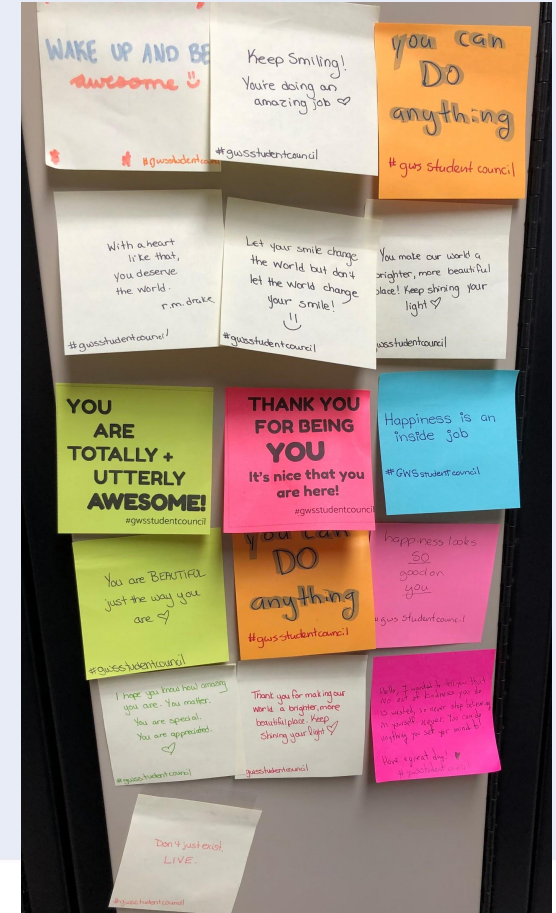 WAKE UP AND BE
awesome
#gwsstudentcoun
Keep Smiling!
You're doing an
amazing job ♡
#gwsstudentcouncil
you can
DO
anything
#gws student council
With a heart
like that,
you deserve
the world.
r.m. drake
#gwsstudentcouncil
Let your smile change
the world but don't
let the world change
your smile!
#gwsstudentcouncil
You make our world a
brighter, more beautiful
place! Keep shining your
light ♡
wsstudentcouncil
YOU
ARE
TOTALLY +
UTTERLY
AWESOME!
#gwsstudentcouncil
THANK YOU
FOR BEING
YOU
It's nice that you
are here!
#gwsstudentcouncil
Happiness is an
inside job
#GWSstudentcouncil
You are BEAUTIFUL
just the way you
are ♡
#gwsstudentcouncil
you can
DO
anything
#gwsstudentcouncil
happiness looks
SO
good on
you
gws studentcouncil
I hope you know how amazing
you are. You matter.
You are special.
You are appreciated.
♡
#gwsstudentcouncil
Thank you for making our
world a brighter, more
beautiful place. Keep
Shining your light ♡
gwsstudentcouncil
Hello, I wanted to tell you that
no act of kindness you do
is wasted, so never stop believing
in yourself
anything you set your mind to!
Have a great day! ♥
#gwsstudentcouncil
Don't just exist,
LIVE.
#gwsstudentcouncil